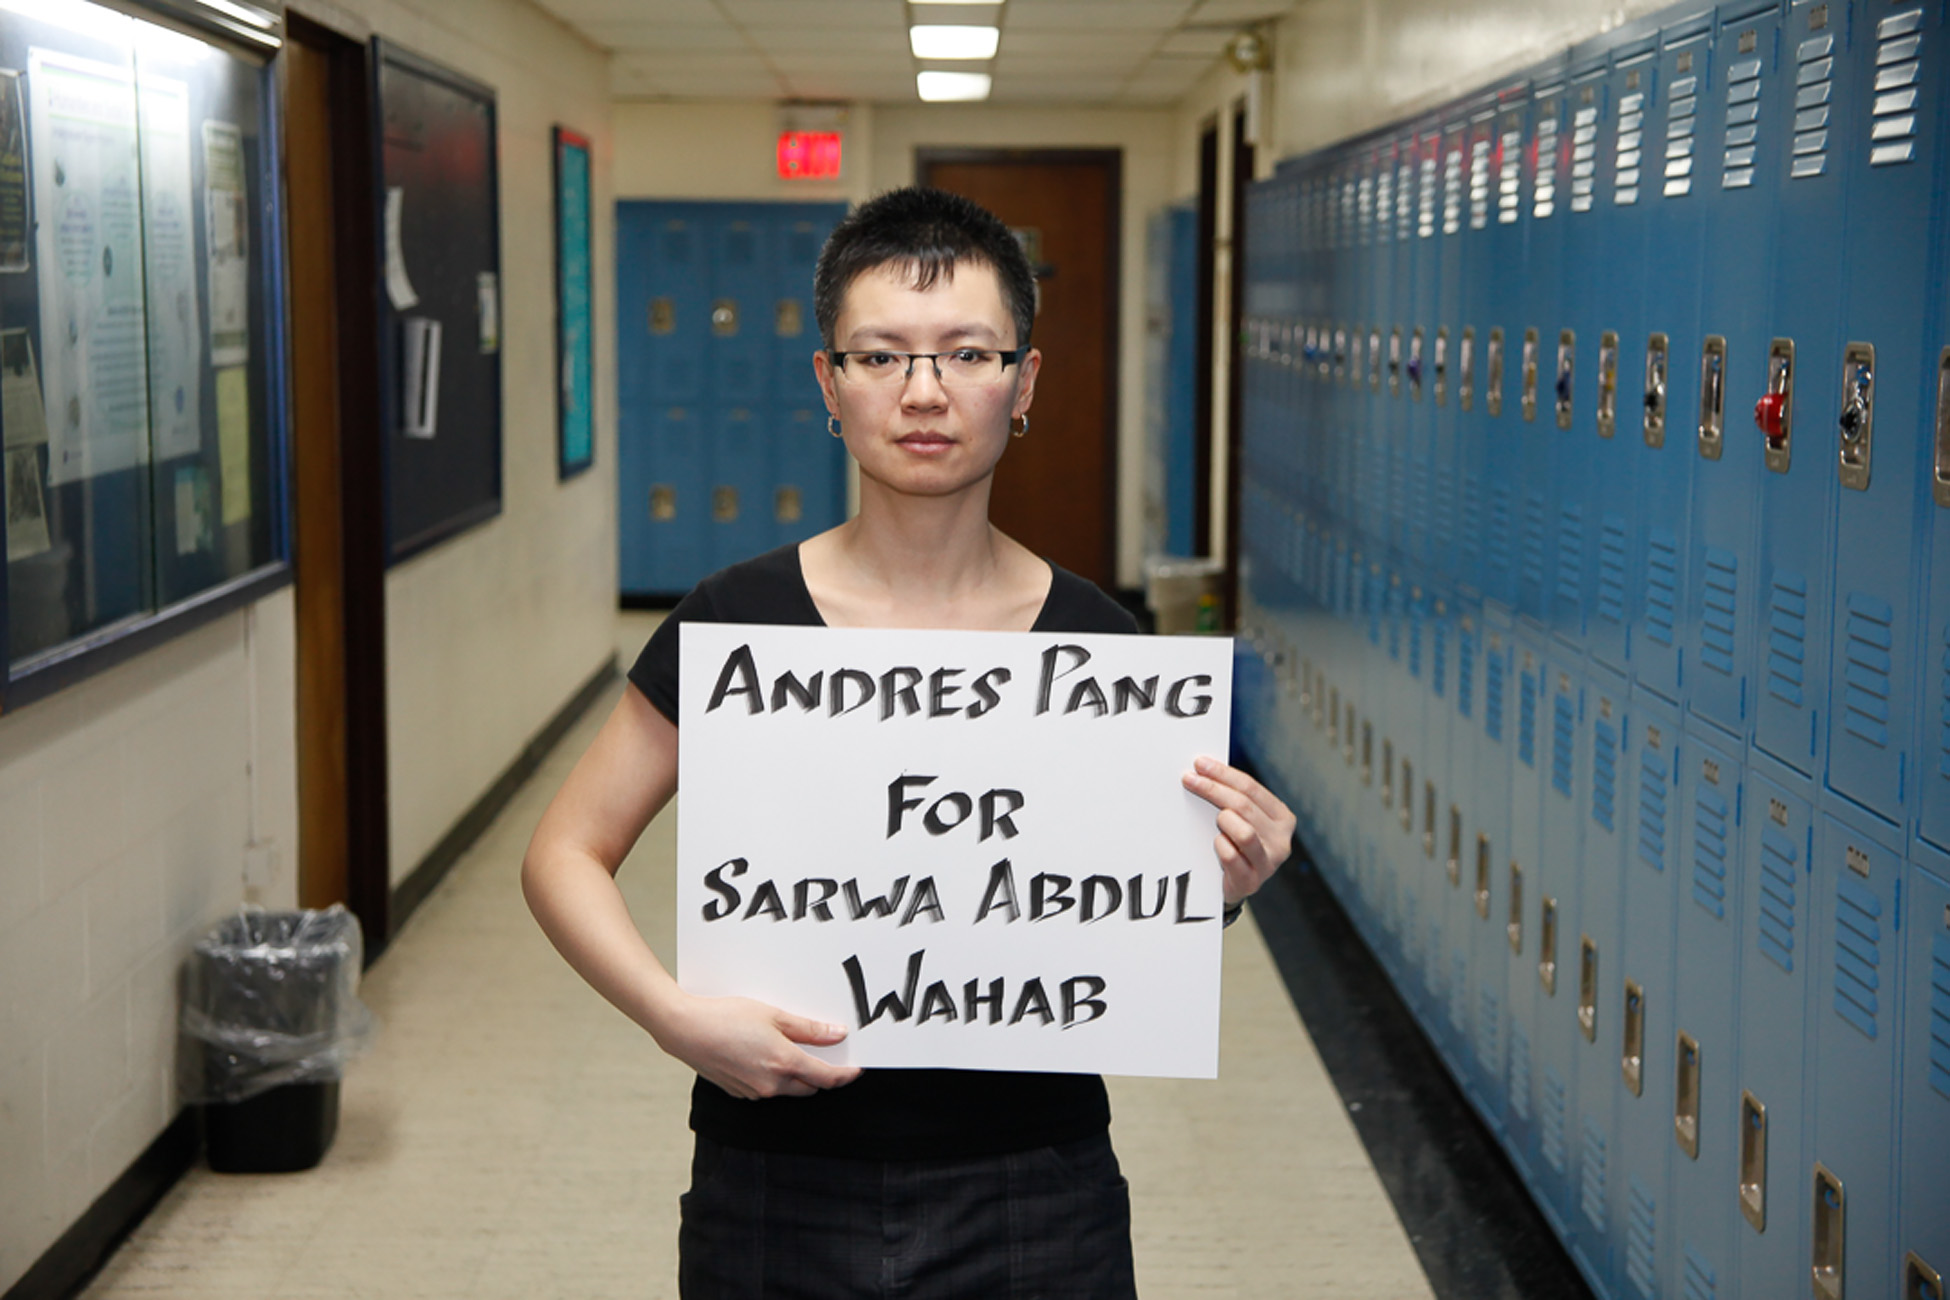 ANDRES PANG
FOR
SARWA ABDUL
WAHAB